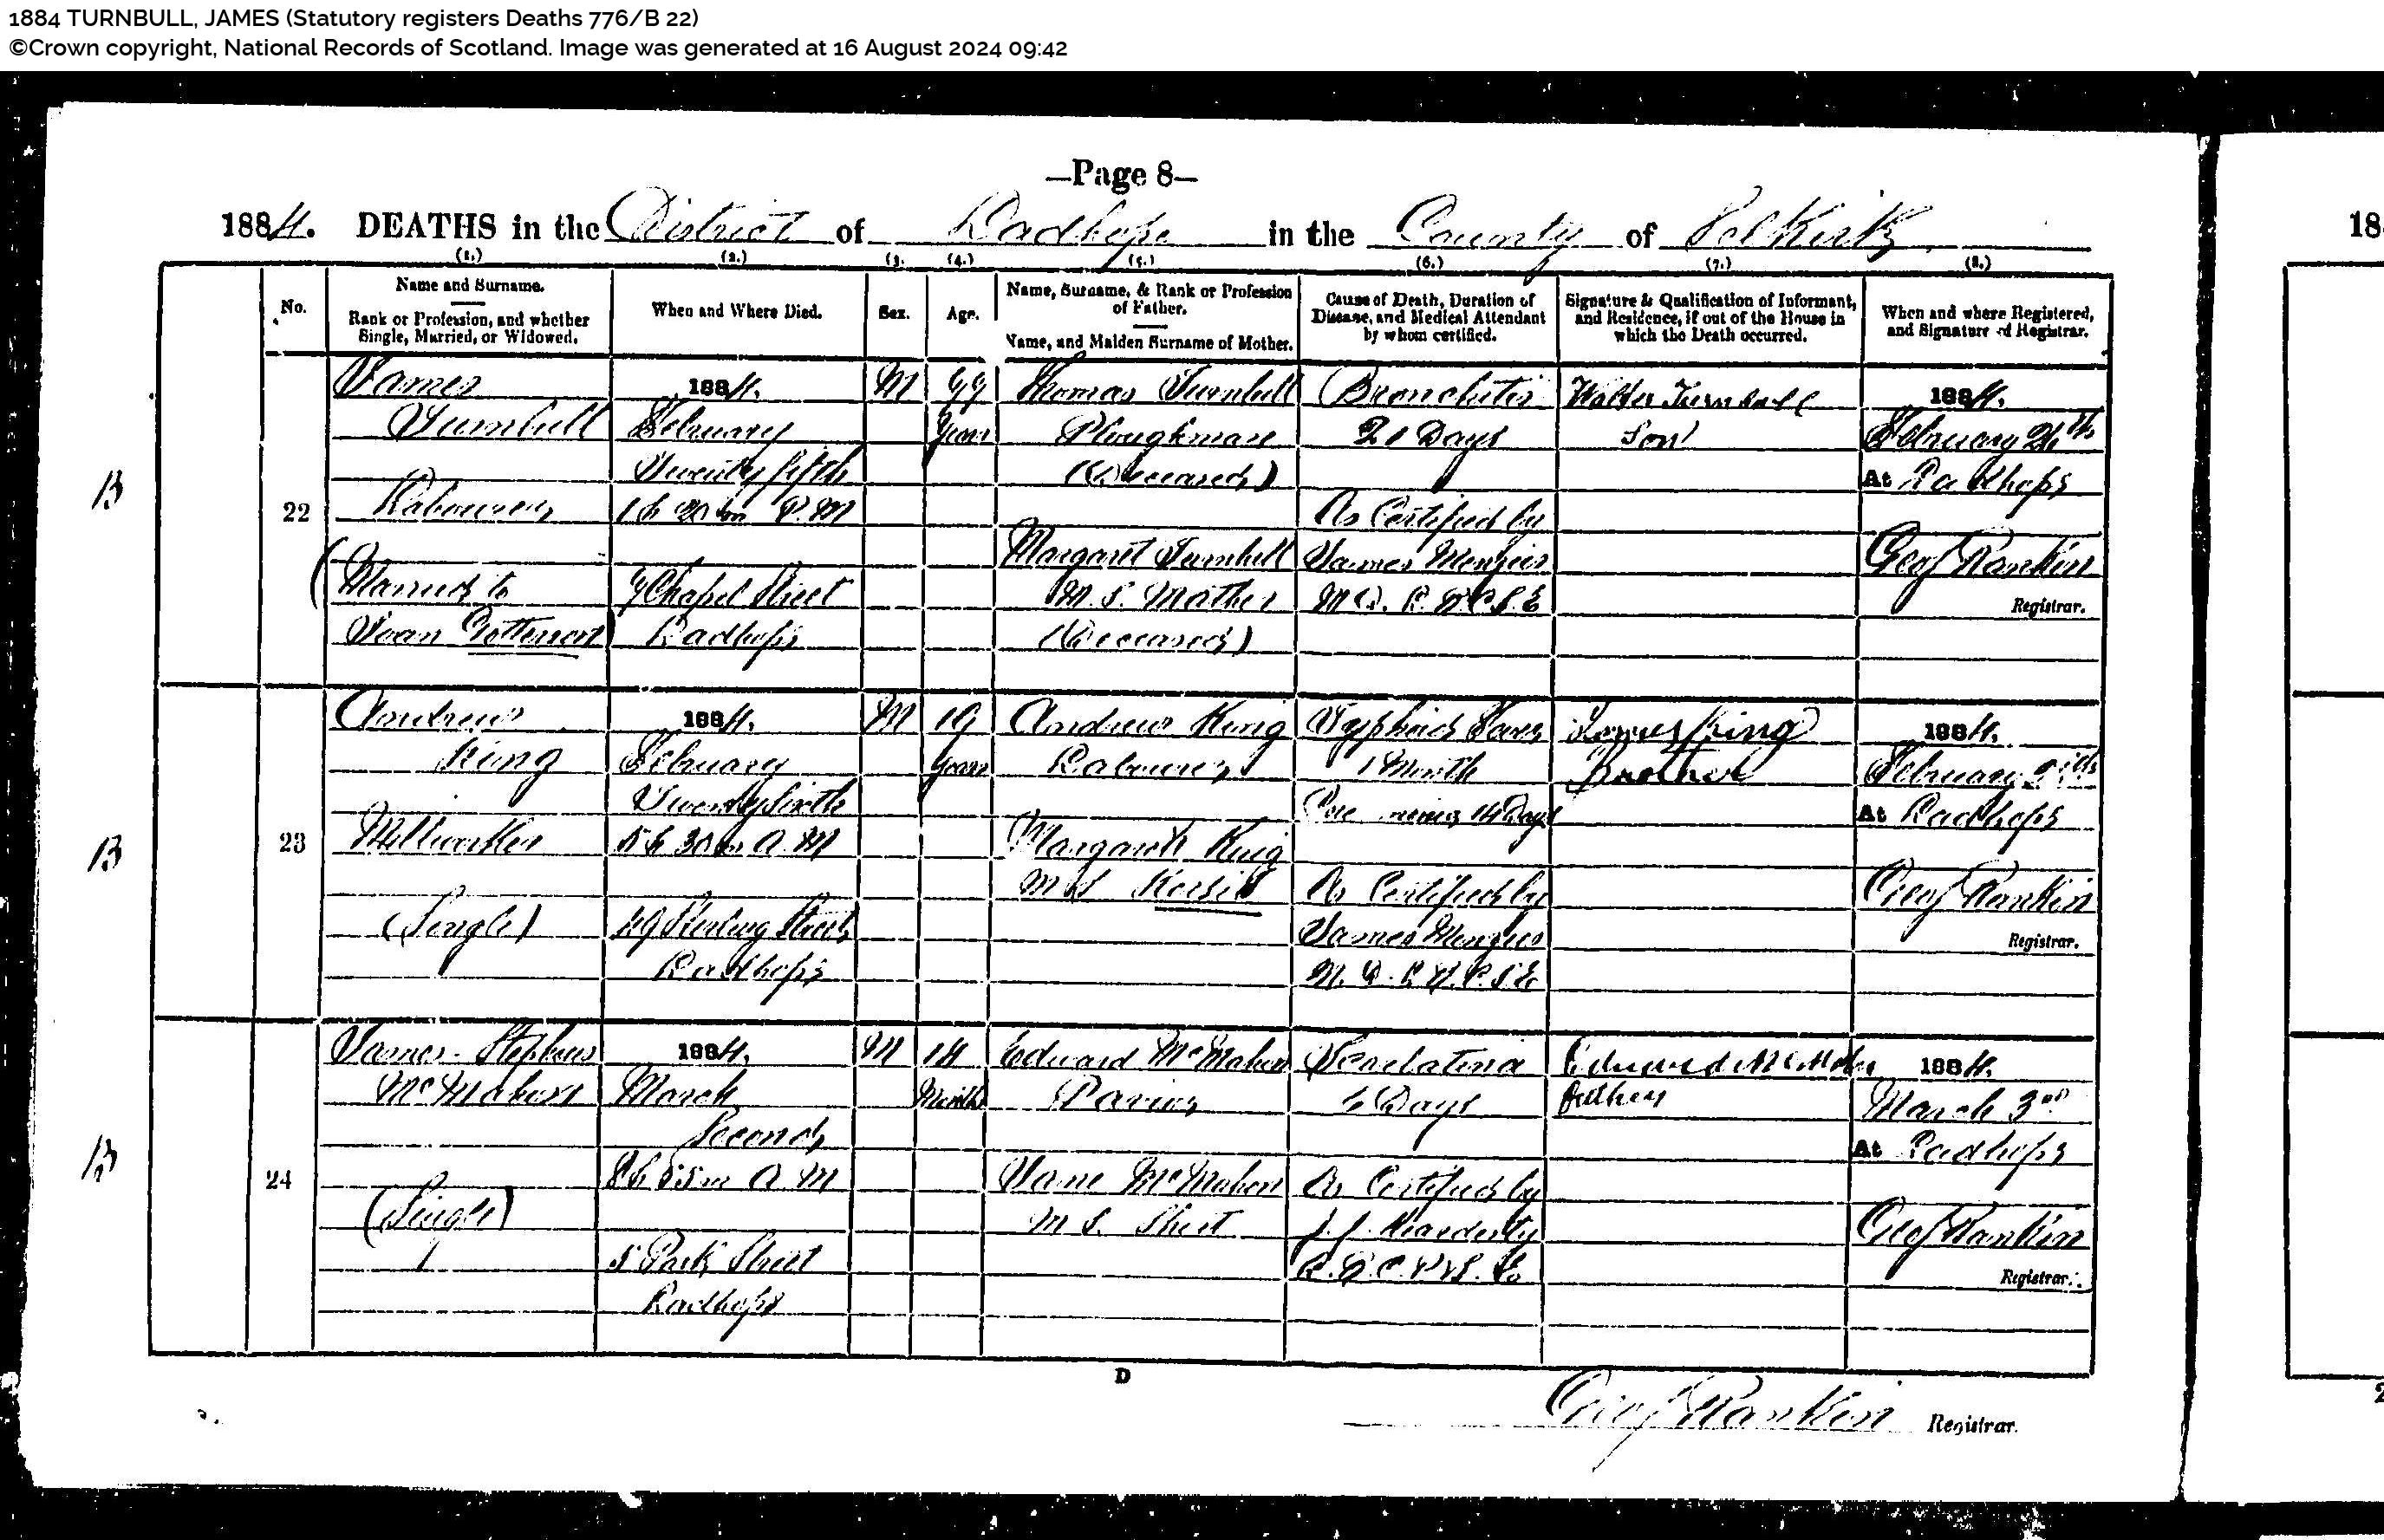 1884 TURNBULL, JAMES (Statutory registers Deaths 776/B 22)
©Crown copyright, National Records of Scotland. Image was generated at 16 August 2024 09:42
—Page 8—
1884. DEATHS in the District of Ladhope in the County of Selkirk
(1.) (2.) (3. (4.) (5.) (6.) (7.) (8.)
No.
Name and Surname.
Rank or Profession, and whether
Single, Married, or Widowed.
When and Where Died.
Sex.
Age.
Name, Surname, & Rank or Profession
of Father.
Name, and Maiden Surname of Mother.
Cause of Death, Duration of
Disease, and Medical Attendant
by whom certified.
Signature & Qualification of Informant,
and Residence, if out of the House in
which the Death occurred.
When and where Registered,
and Signature of Registrar.
B
22
James
Turnbull
Labourer
(Married to
Jean
1884.
February
Twenty fifth
P.M
Chapel Street
Ladhope
M
Years
Thomas Turnbull
Ploughman
(Deceased)
Margaret Turnbull
M.S. Mather
(Deceased)
Bronchitis
Days
As Certified by
James Menzies
M.D. L.R.C.S.E
Walter Turnbull
Son
1884.
February
At Ladhope
Geo Rankin
Registrar.
B
23
Andrew
King
Millworker
(Single)
1884.
February
Twenty sixth
5 h 30 m A.M
Street
Ladhope
M
19
Years
Andrew King
Labourer
Margaret King
M S
Typhoid Fever
1 Month
14 Days
As Certified by
James Menzies
M.D. L.R.C.S.E
James King
Brother
1884.
February
At Ladhope
Geo Rankin
Registrar.
B
24
James Stephen
McMahon
(Single)
1884.
March
Second
8 h 55 m A M
5 Park Street
Ladhope
M
14
Months
Edward McMahon
Pavior
Jane McMahon
M S. Short
Scarlatina
Days
As Certified by
J. J.
Edward McMahon
father
1884.
March 3rd
At Ladhope
Geo Rankin
Registrar.
D
Geo Rankin Registrar.
188